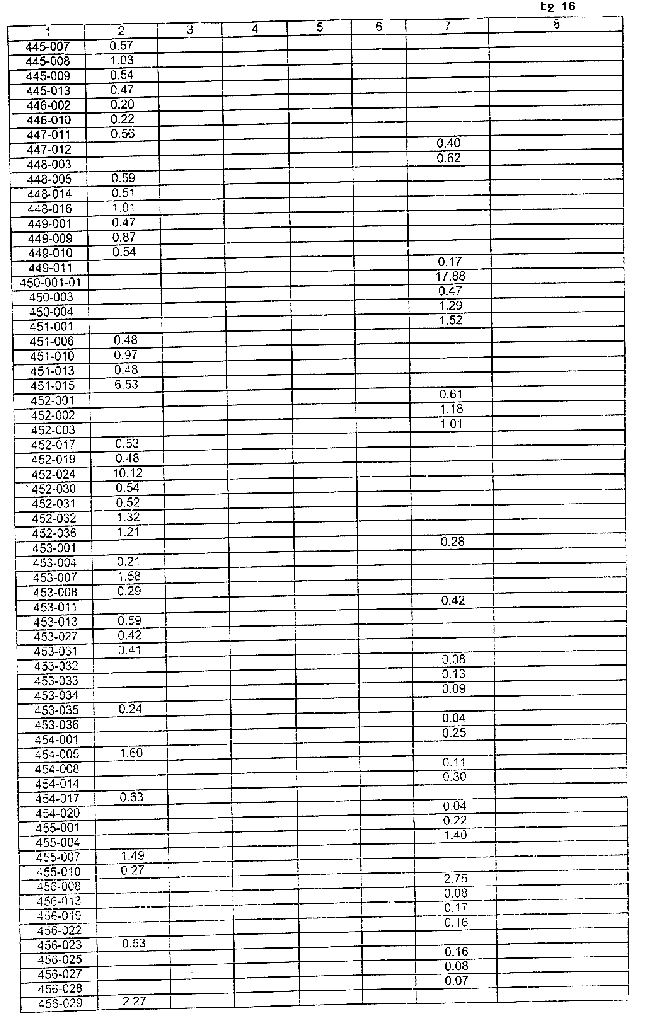 16
1 2 3 4 5 6 7 8
445-007 0.57
445-008 1.03
445-009 0.54
445-013 0.47
446-002 0.20
446-010 0.22
447-011 0.56
447-012 0.40
448-003 0.62
448-005 0.59
448-014 0.51
448-016 1.01
449-001 0.47
449-009 0.87
449-010 0.54
449-011 0.17
450-001-01 17.88
450-003 0.47
450-004 1.29
451-001 1.52
451-006 0.48
451-010 0.97
451-013 0.48
451-015 6.53
452-001 0.61
452-002 1.18
452-003 1.01
452-017 0.53
452-019 0.48
452-024 10.12
452-030 0.54
452-031 0.52
452-032 1.32
452-036 1.21
453-001 0.28
453-004 0.21
453-007 1.58
453-008 0.29
453-011 0.42
453-013 0.59
453-027 0.42
453-031 0.41
453-032 0.08
453-033 0.13
453-034 0.09
453-035 0.24
453-036 0.04
454-001 0.25
454-005 1.60
454-008 0.11
454-014 0.30
454-017 0.53
454-020 0.04
455-001 0.22
455-004 1.40
455-007 1.49
455-010 0.27
456-008 2.75
456-012 0.08
456-019 0.17
456-022 0.16
456-023 0.53
456-025 0.16
456-027 0.08
456-028 0.07
456-029 2.27